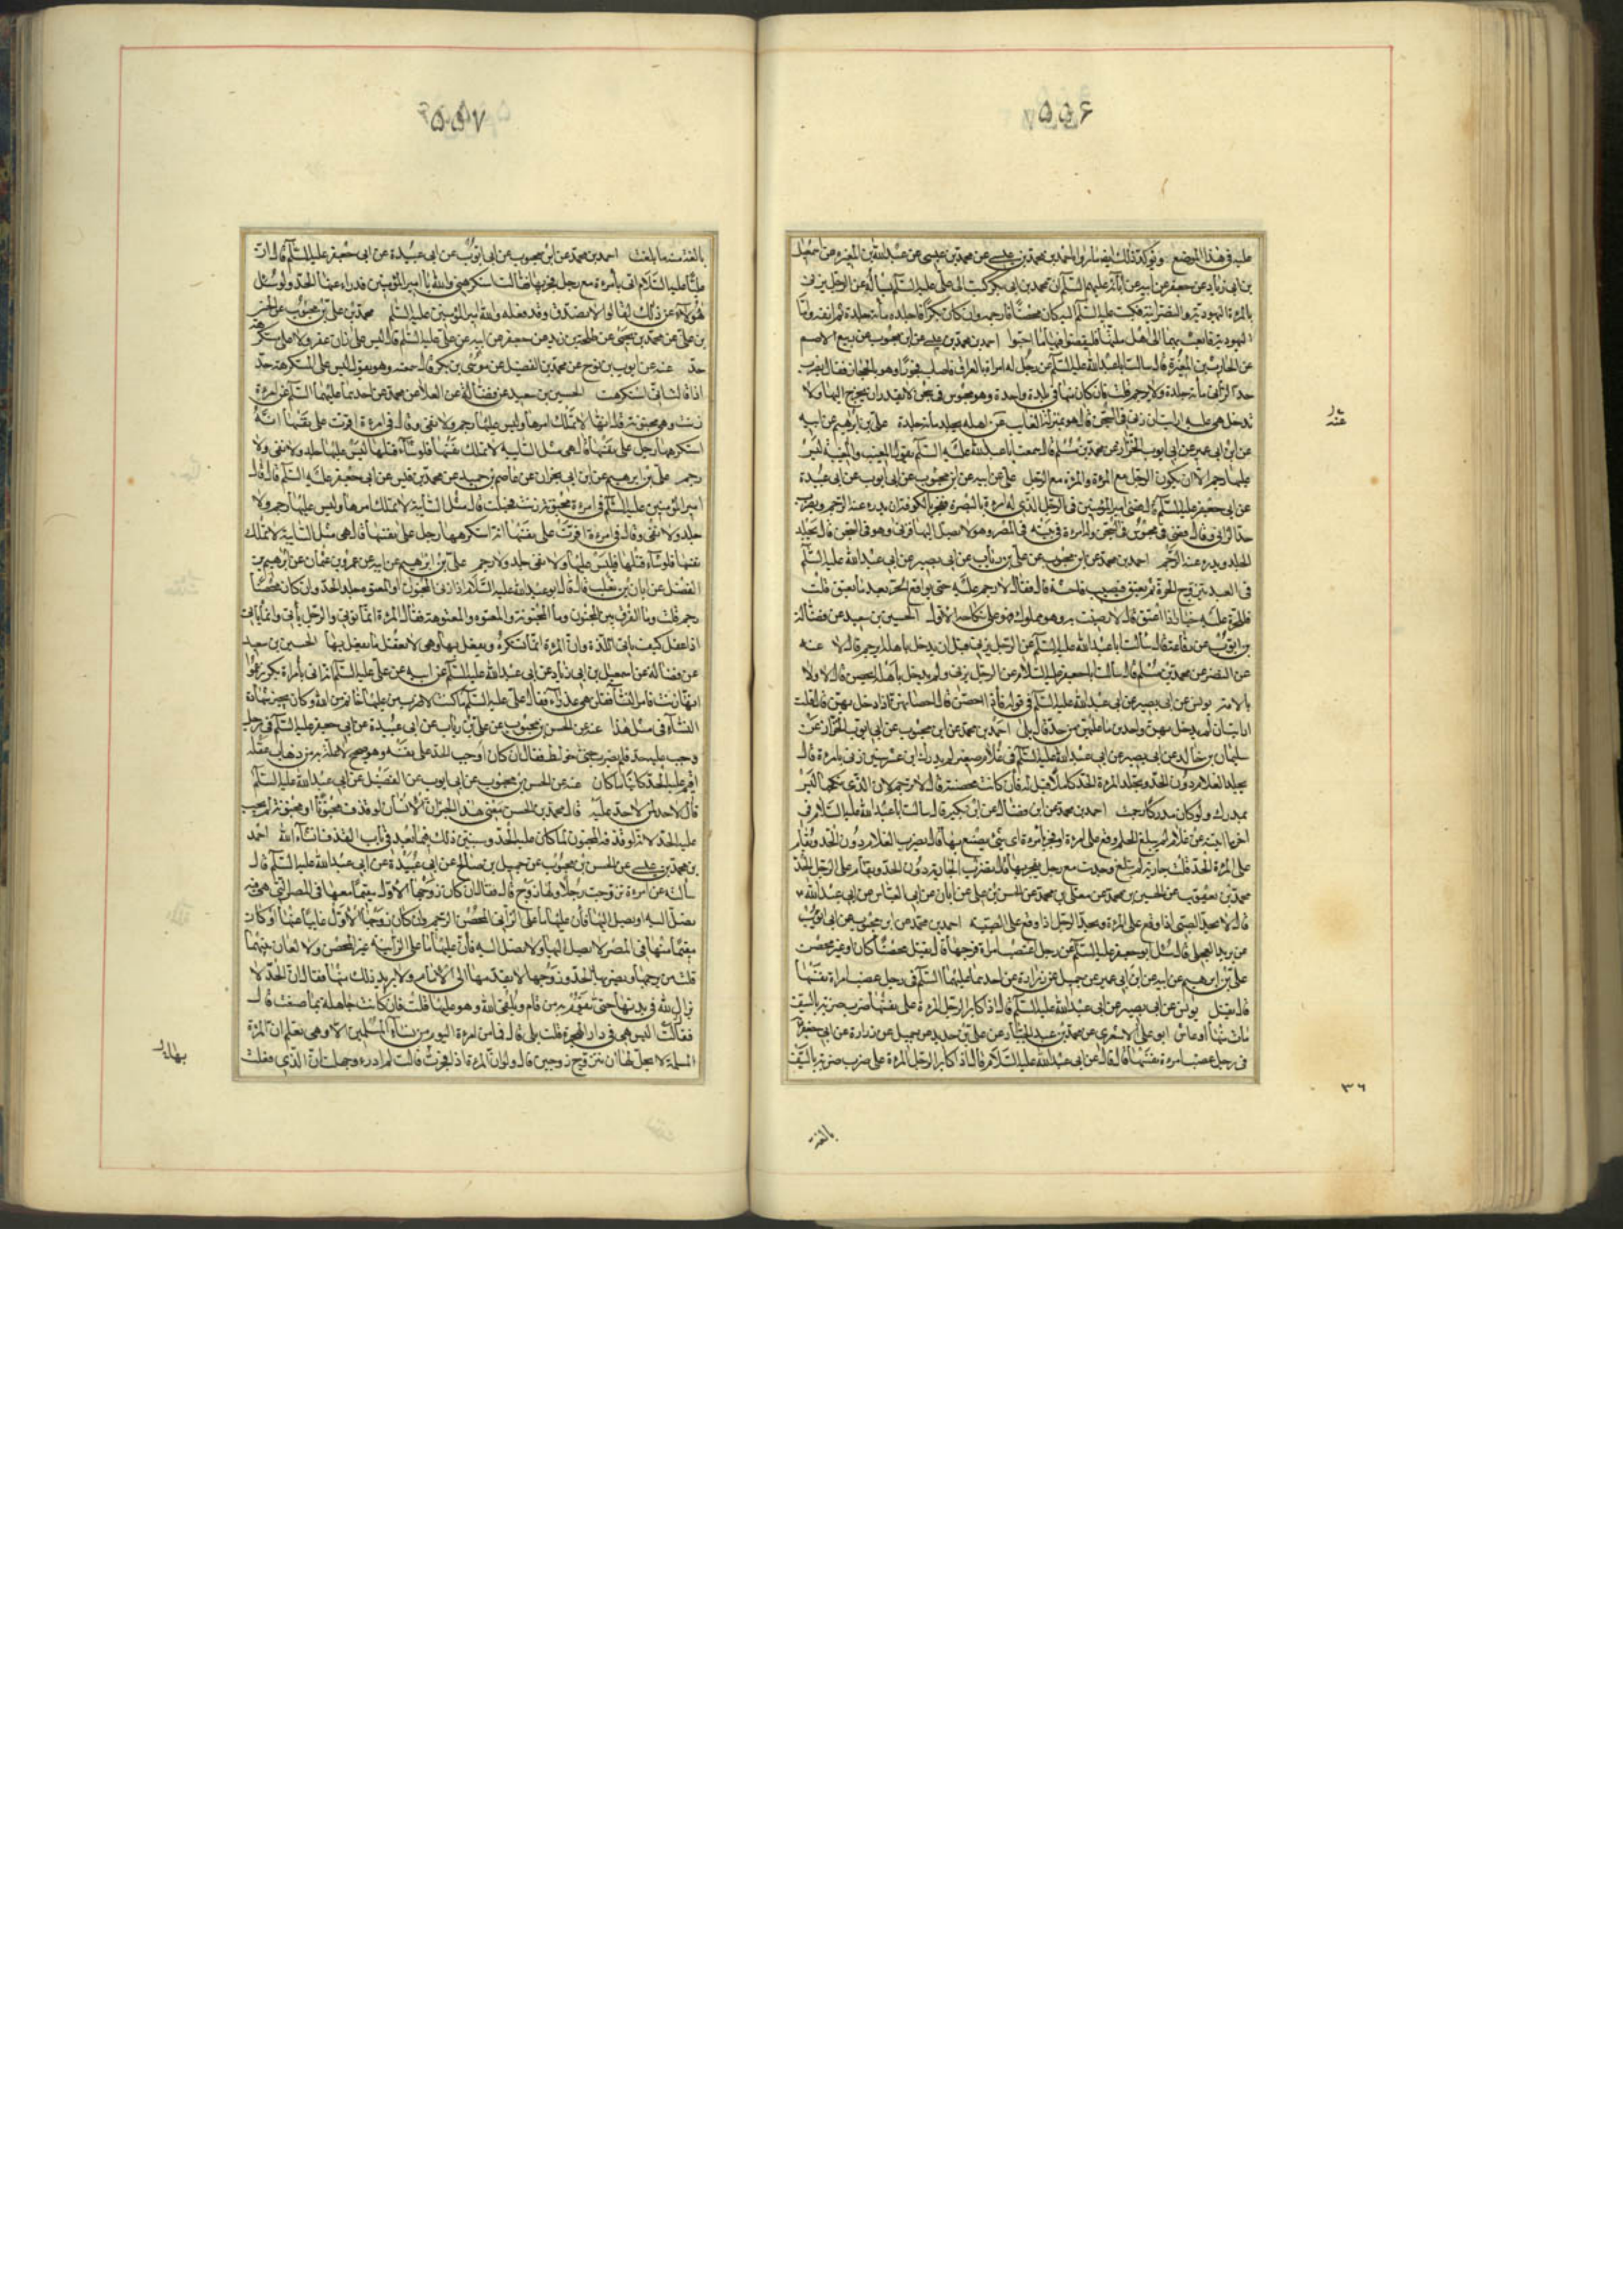 ۵۵۶
عليه في هذا الموضع ويؤكد ذلك ايضا ما رواه احمد بن محمد بن عيسى عن محمد بن عيسى عن عبدالله بن المغيرة عن اسمعيل
بن ابي زياد عن جعفر عن ابيه عن آبائه عليهم السلم ان محمد بن ابي بكر كتب الى علي عليه السلم يسأله عن الرجل يزني
بالمرءة اليهودية والنصرانية فكتب عليه السلم اليه ان كان محصنا فارجمه وان كان بكرا فاجلده مائة جلدة ثم انفه واما
اليهودية فابعث بها الى اهل ملتها فليقضوا فيها ما احبوا احمد بن محمد بن عيسى عن ابن محبوب عن ربيع الاصم
عن الحارث بن المغيرة قال سالت اباعبدالله عليه السلم عن رجل له امراة بالعراق فاصاب فجورا وهو بالحجاز فقال يضرب
حد الزاني مائة جلدة ولا يرجم قلت فان كان معها في بلدة واحدة وهو محبوس في سجن لا يقدر ان يخرج اليها ولا
تدخل هي عليه ارايت ان زنى في السجن قال هو بمنزلة الغايب عن اهله يجلد مائة جلدة علي بن ابرهيم عن ابيه
عن ابن ابي عمير عن ابي ايوب الخزاز عن محمد بن مسلم قال سمعت اباعبدالله عليه السلم يقول المغيب والمغيبة ليس
عليهما رجم الا ان يكون الرجل مع المرءة والمرءة مع الرجل علي عن ابيه عن ابن محبوب عن ابي ايوب عن ابي عبيدة
عن ابي جعفر عليه السلم قال قضى امير المؤمنين في الرجل الذي له امرءة بالبصرة ففجر بالكوفة ان يدرء عنه الرجم ويضرب
حد الزاني وقال قضى في محبوس في السجن وله امرءة في بيته في المصر وهو لا يصل اليها فزنى وهو في السجن قال يجلد
الجلد ويدرء عنه الرجم احمد بن محمد عن ابن محبوب عن علي بن رئاب عن ابي بصير عن ابي عبدالله عليه السلم
في العبد يتزوج الحرة ثم يعتق فيصيب فاحشة قال فقال لا رجم عليه حتى يواقع الحرة بعد ما يعتق قلت
فللحرة عليه خيار اذا اعتق قال لا رضيت به وهو مملوك فهو على نكاحه الاول الحسين بن سعيد عن فضالة
بن ايوب عن رفاعة قال سألت اباعبدالله عليه السلم عن الرجل يزني قبل ان يدخل باهله ايرجم قال لا عنه
عن النضر عن محمد بن مسلم قال سالت اباجعفر عليه السلام عن الرجل يزني ولم يدخل باهله ايحصن قال لا ولا
بالامة يونس عن ابي بصير عن ابي عبدالله عليه السلم في قوله فاذا احصن قال احصانهن اذا دخل بهن قال قلت
ارايت ان لم يدخل بهن واحدثن ما عليهن من حد قال بلى احمد بن محمد عن ابن محبوب عن ابي ايوب الخزاز عن
سليمان بن خالد عن ابي بصير عن ابي عبدالله عليه السلم في غلام صغير لم يدرك ابن عشر سنين زنى بامرءة قال
يجلد الغلام دون الحد وتجلد المرءة الحد كاملا قيل له فان كانت محصنة قال لا ترجم لان الذي نكحها ليس
بمدرك ولو كان مدركا رجمت احمد بن محمد عن ابن فضال عن ابن بكير قال سالت اباعبدالله عليه السلام في
اخر ما لقيته عن غلام لم يبلغ الحلم وقع على امرءة او فجر بامرءة اي شيء يصنع بهما قال يضرب الغلام دون الحد ويقام
على المرءة الحد قلت جارية لم تبلغ وجدت مع رجل يفجر بها قال تضرب الجارية دون الحد ويقام على الرجل الحد
محمد بن يعقوب عن الحسين بن محمد عن معلى بن محمد عن الحسن بن علي عن ابان عن ابي العباس عن ابي عبدالله
قال لا يحد الصبي اذا وقع على المرءة ويحد الرجل اذا وقع على الصبية احمد بن محمد عن ابن محبوب عن ابي ايوب
عن بريد العجلي قال سئل ابو جعفر عليه السلم عن رجل اغتصب امراة فرجها قال يقتل محصنا كان او غير محصن
علي بن ابرهيم عن ابيه عن ابن ابي عمير عن جميل عن زرارة عن احدهما عليهما السلم في رجل غصب امراة نفسها
قال يقتل يونس عن ابي بصير عن ابي عبدالله عليه السلم قال اذا كابر الرجل المرءة على نفسها ضرب ضربة بالسيف
مات منها او عاش ابو علي الاشعري عن محمد بن عبد الجبار عن علي بن حديد عن جميل عن زرارة عن ابي جعفر
في رجل غصب امرءة نفسها قال قال عن ابي عبدالله عليه السلام قال اذا كابر الرجل المرءة على ضرب ضربة بالسيف
عنه
٣٦
بالغة
۵۵۷
بالغة منه ما بلغت احمد بن محمد عن ابن محبوب عن ابي ايوب عن ابي عبيدة عن ابي جعفر عليه السلم قال ان
عليا عليه السلام اتي بامرءة مع رجل فجر بها فقالت استكرهني والله يا امير المؤمنين فدراء عنها الحد ولو سئل
هؤلاء عن ذلك لقالوا لا تصدق وقد فعله والله امير المؤمنين عليه السلم محمد بن علي بن محبوب عن الحسن
بن علي عن محمد بن يحيى عن طلحة بن زيد عن جعفر عن ابيه عن علي عليه السلم قال ليس على زان عقر ولا على مستكرهة
حد عنه عن ايوب بن نوح عن محمد بن الفضيل عن موسى بن بكر قال سمعته وهو يقول ليس على المستكرهة حد
اذا قالت اني استكرهت الحسين بن سعيد عن فضالة عن العلا عن محمد عن احدهما عليهما السلم عن امرءة
زنت وهي مجنونة قال انها لا تملك امرها وليس عليها رجم ولا نفي وقال في امرءة اقرت على نفسها انه
استكرهها رجل على نفسها قال هي مثل السايبة لا تملك نفسها فلو شاء قتلها ليس عليها جلد ولا نفي ولا
رجم علي بن ابرهيم عن ابن ابي نجران عن عاصم بن حميد عن محمد بن قيس عن ابي جعفر عليه السلم قال قال
امير المؤمنين عليه السلم في امرءة مجنونة زنت فحبلت قال مثل السايبة لا تملك امرها وليس عليها رجم ولا
جلد ولا نفي وقال في امرءة اقرت على نفسها انه استكرهها رجل على نفسها قال هي مثل السايبة لا تملك
نفسها فلو شاء قتلها فليس عليها ولا نفي جلد ولا رجم علي بن ابرهيم عن ابيه عن عمرو بن عثمان عن ابرهيم بن
الفضل عن ابان بن تغلب قال قال ابوعبدالله عليه السلام اذا زنى المجنون او المعتوه جلد الحد وان كان محصنا
رجم قلت وما الفرق بين المجنون وما المجنونة والمعتوه والمعتوهة فقال المرءة انما تؤتى والرجل ياتي وانما ياتي
اذا عقل كيف ياتي اللذة وان المرءة انما تستكره ويفعل بها وهي لا تعقل ما يفعل بها الحسين بن سعيد
عن فضالة عن اسمعيل بن ابي زياد عن ابي عبدالله عليه السلم عن ابيه عن علي عليه السلم انه اتي بامراة بكر زعموا
انها زنت فامر النساء فقلن هي عذراء فقال علي عليه السلم ما كنت لاضرب من عليها خاتم من الله وكان يجيز شهادة
النساء في مثل هذا عنه عن الحسن بن محبوب عن علي بن رئاب عن ابي عبيدة عن ابي جعفر عليه السلم في رجل
وجب عليه حد فلم يضرب حتى خولط فقال ان كان اوجب الحد على نفسه وهو صحيح لا علة به من ذهاب عقله
اقيم عليه الحد كائنا ما كان عنه عن الحسن بن محبوب عن ابي ايوب عن الفضيل عن ابي عبدالله عليه السلم
قال لا حد لمن لا حد عليه قال محمد بن الحسن معنى هذا الخبر ان الانسان لو قذف مجنونا او مجنونة لم يجب
عليه الحد لانه لو قذفه المجنون لما كان عليه الحد وسنبين ذلك فيما بعد في باب القذف انشاء الله احمد
بن محمد بن عيسى عن الحسن بن محبوب عن جميل بن صالح عن ابي عبيدة عن ابي عبدالله عليه السلم قال
سألته عن امرءة تزوجت رجلا ولها زوج قال فقال ان كان زوجها الاول مقيما معها في المصر التي هي فيه
تصل اليه او يصل اليها فان عليها ما على الزاني المحصن الرجم وان كان زوجها الاول غايبا عنها او كان
مقيما معها في المصر لا يصل اليها ولا تصل اليه فان عليها ما على الزانية غير المحصن ولا لعان بينهما
قلت من يرجمها ويضربها الحد وزوجها لا يقدمها الى الامام ولا يريد ذلك منها فقال ان الحد لا
يزال لله في بدنها حتى يقوم به من قام وتلقى الله وهو عليها قلت فان كانت جاهلة بما صنعت قال
فقالت اليس هي في دار الهجرة قلت بلى قال فما من امرءة اليوم من نساء المسلمين الا وهي تعلم ان المرءة
المسلمة لا يحل لها ان تتزوج زوجين قال ولو ان المرءة اذا فجرت قالت لم ادر او جهلت ان الذي فعلت